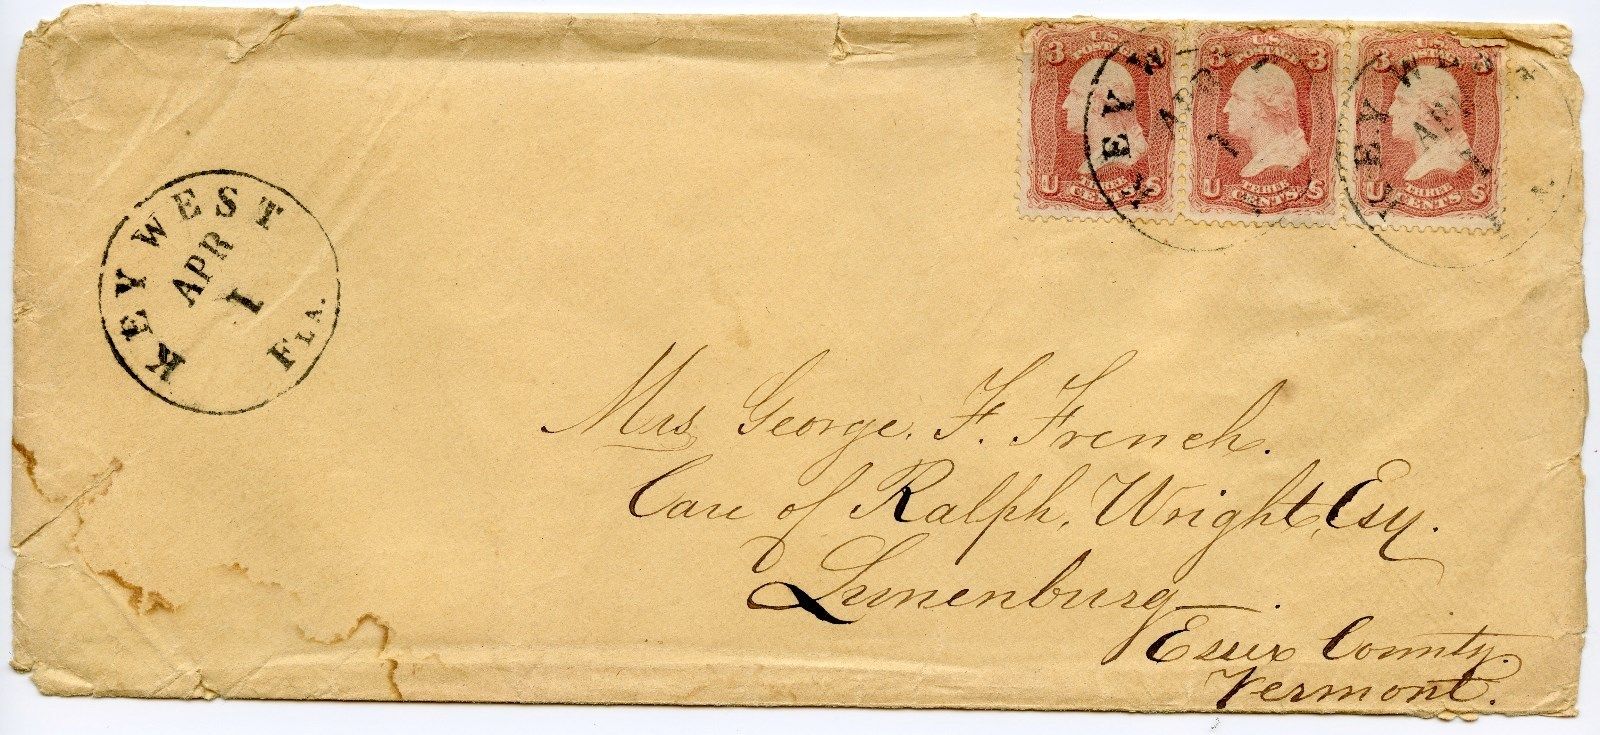 KEY WEST
APR
1
FLA.
3 US POSTAGE 3
U THREE CENTS S
3 US POSTAGE 3
U THREE CENTS S
3 US POSTAGE 3
U THREE CENTS S
KEY W
APR
1
KEY WEST
APR
1
FLA.
Mrs George. F. French.
Care of Ralph, Wright, Esq.
Lunenburg
Essex County.
Vermont.